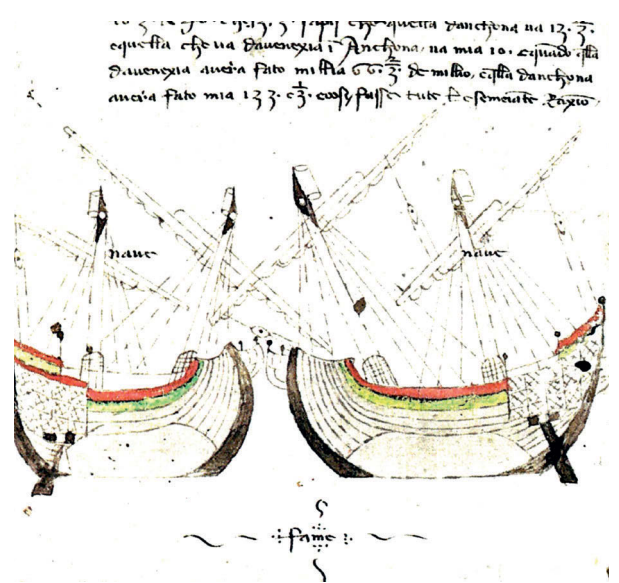 che quella danchona va 13.
e quella che va davenexia i Anchona, va mia 10. e quado qlla
davenexia avera fato milia 66. 2/3 de milio, e qlla danchona
avera fato mia 133. e 1/3. e cosy fasse tute le semeiãte Raxiõ.
nave
nave
fame